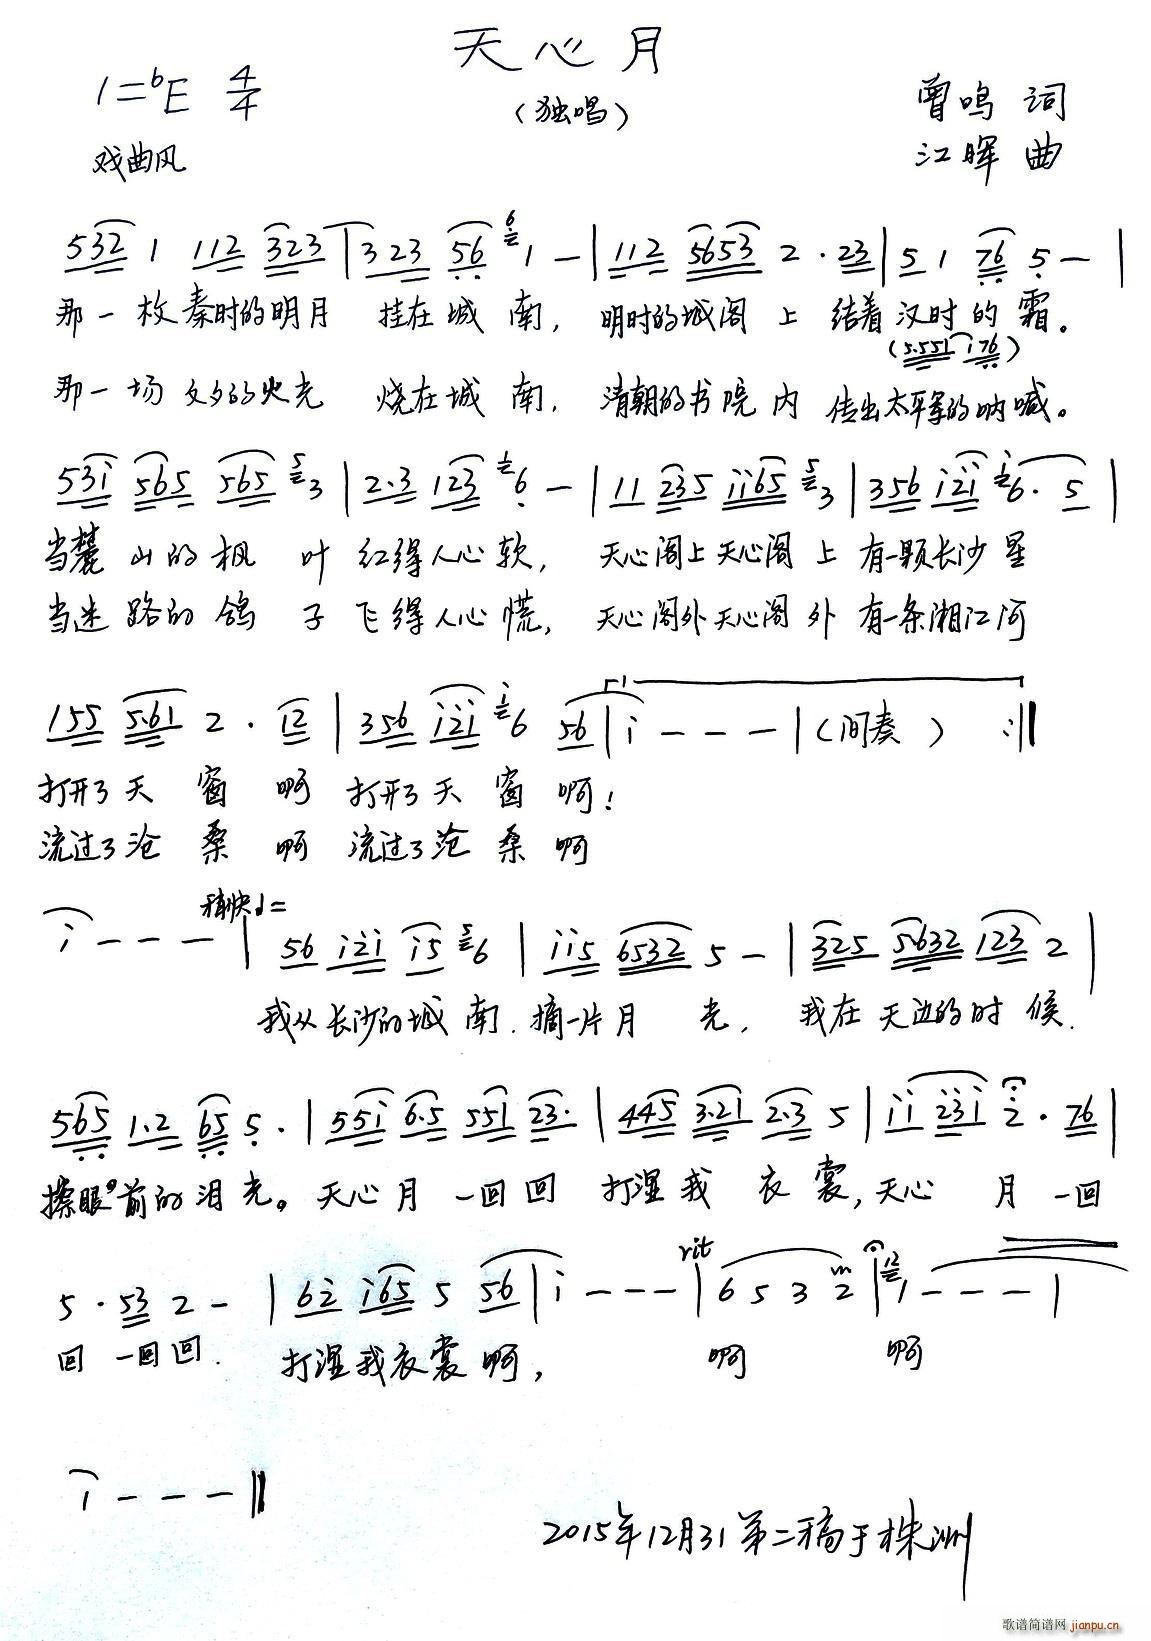 天心月
1=bE 4/4
(独唱)
曾鸣 词
戏曲风
江晖 曲
532 1 112 323 | 3 23 56 6 1 - | 112 5653 2 · 23 | 5 1 76 5 - |
那一枚秦时的明月 挂在城 南, 明时的城阁 上 结着汉时的霜。
(5·551 i76)
那一场文夕的火光 烧在城 南, 清朝的书院内 传出太平军的呐喊。
53i 565 565 5 3 | 2·3 123 1 6 - | 11 235 ii65 5 3 | 356 i2i i 6· 5 |
当麓 山的枫 叶 红得人心软, 天心阁上天心阁 上 有一颗长沙星
当迷 路的鸽 子 飞得人心慌, 天心阁外天心阁 外 有一条湘江河
155 5·61 2 · 12 | 356 i2i i 6 56 | i - - - | (间奏) :‖
打开了天 窗 啊 打开了天 窗 啊!
流过了沧 桑 啊 流过了沧 桑 啊
i - - - | 稍快 ♩=
56 i2i i5 5 6 | ii5 6532 5 - | 325 5632 123 2 |
我从长沙的城 南.摘一片月 光, 我在天边的时 候.
565 1·2 65 5 · | 55i 6·5 551 23· | 445 3·21 2·3 5 | ii 23i 2 · 76 |
擦眼前的泪光。天心月 一回回 打湿我 衣 裳,天心 月 一回
5 · 53 2 - | 62 i65 5 56 | i - - - | rit 6 5 3 2 | 12 1 - - - |
回 一回回. 打湿我衣裳啊, 啊 啊
i - - - ‖
2015年12月31第二稿于株洲
歌谱简谱网 jianpu.cn